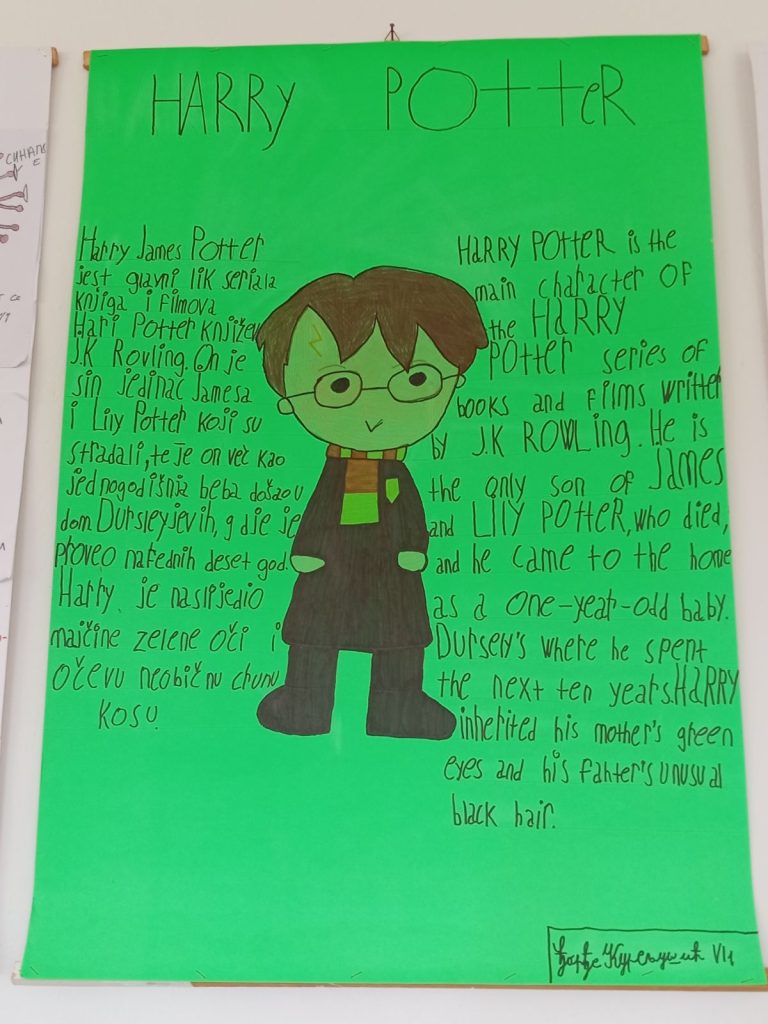 HARRY POttER
Harry James Potter
jest glavni lik seriala
knjiga i filmova
Hari Potter književ
J.K Rovling. On je
sin jedinac Jamesa
i Lily Potter koji su
stradali, te je on već kao
jednogodišnja beba došao u
dom Dursleyjevih, gdje je
proveo narednih deset god.
Harry je naslijedio
majčine zelene oči i
očevu neobičnu crnu
kosu
HARRY POTTER is the
main character OF
the HARRY
POTTER series of
books and FILMS written
by J.K ROWLing. He is
the only son of JAMES
and LILY POTTER, who died,
and he came to the home
as a one-year-odd baby.
Dursery's where he spent
the next ten years. HARRY
inherited his mother's green
eyes and his fahter's unusual
black hair.
Ђорђе VI1
СИНАПС
Е